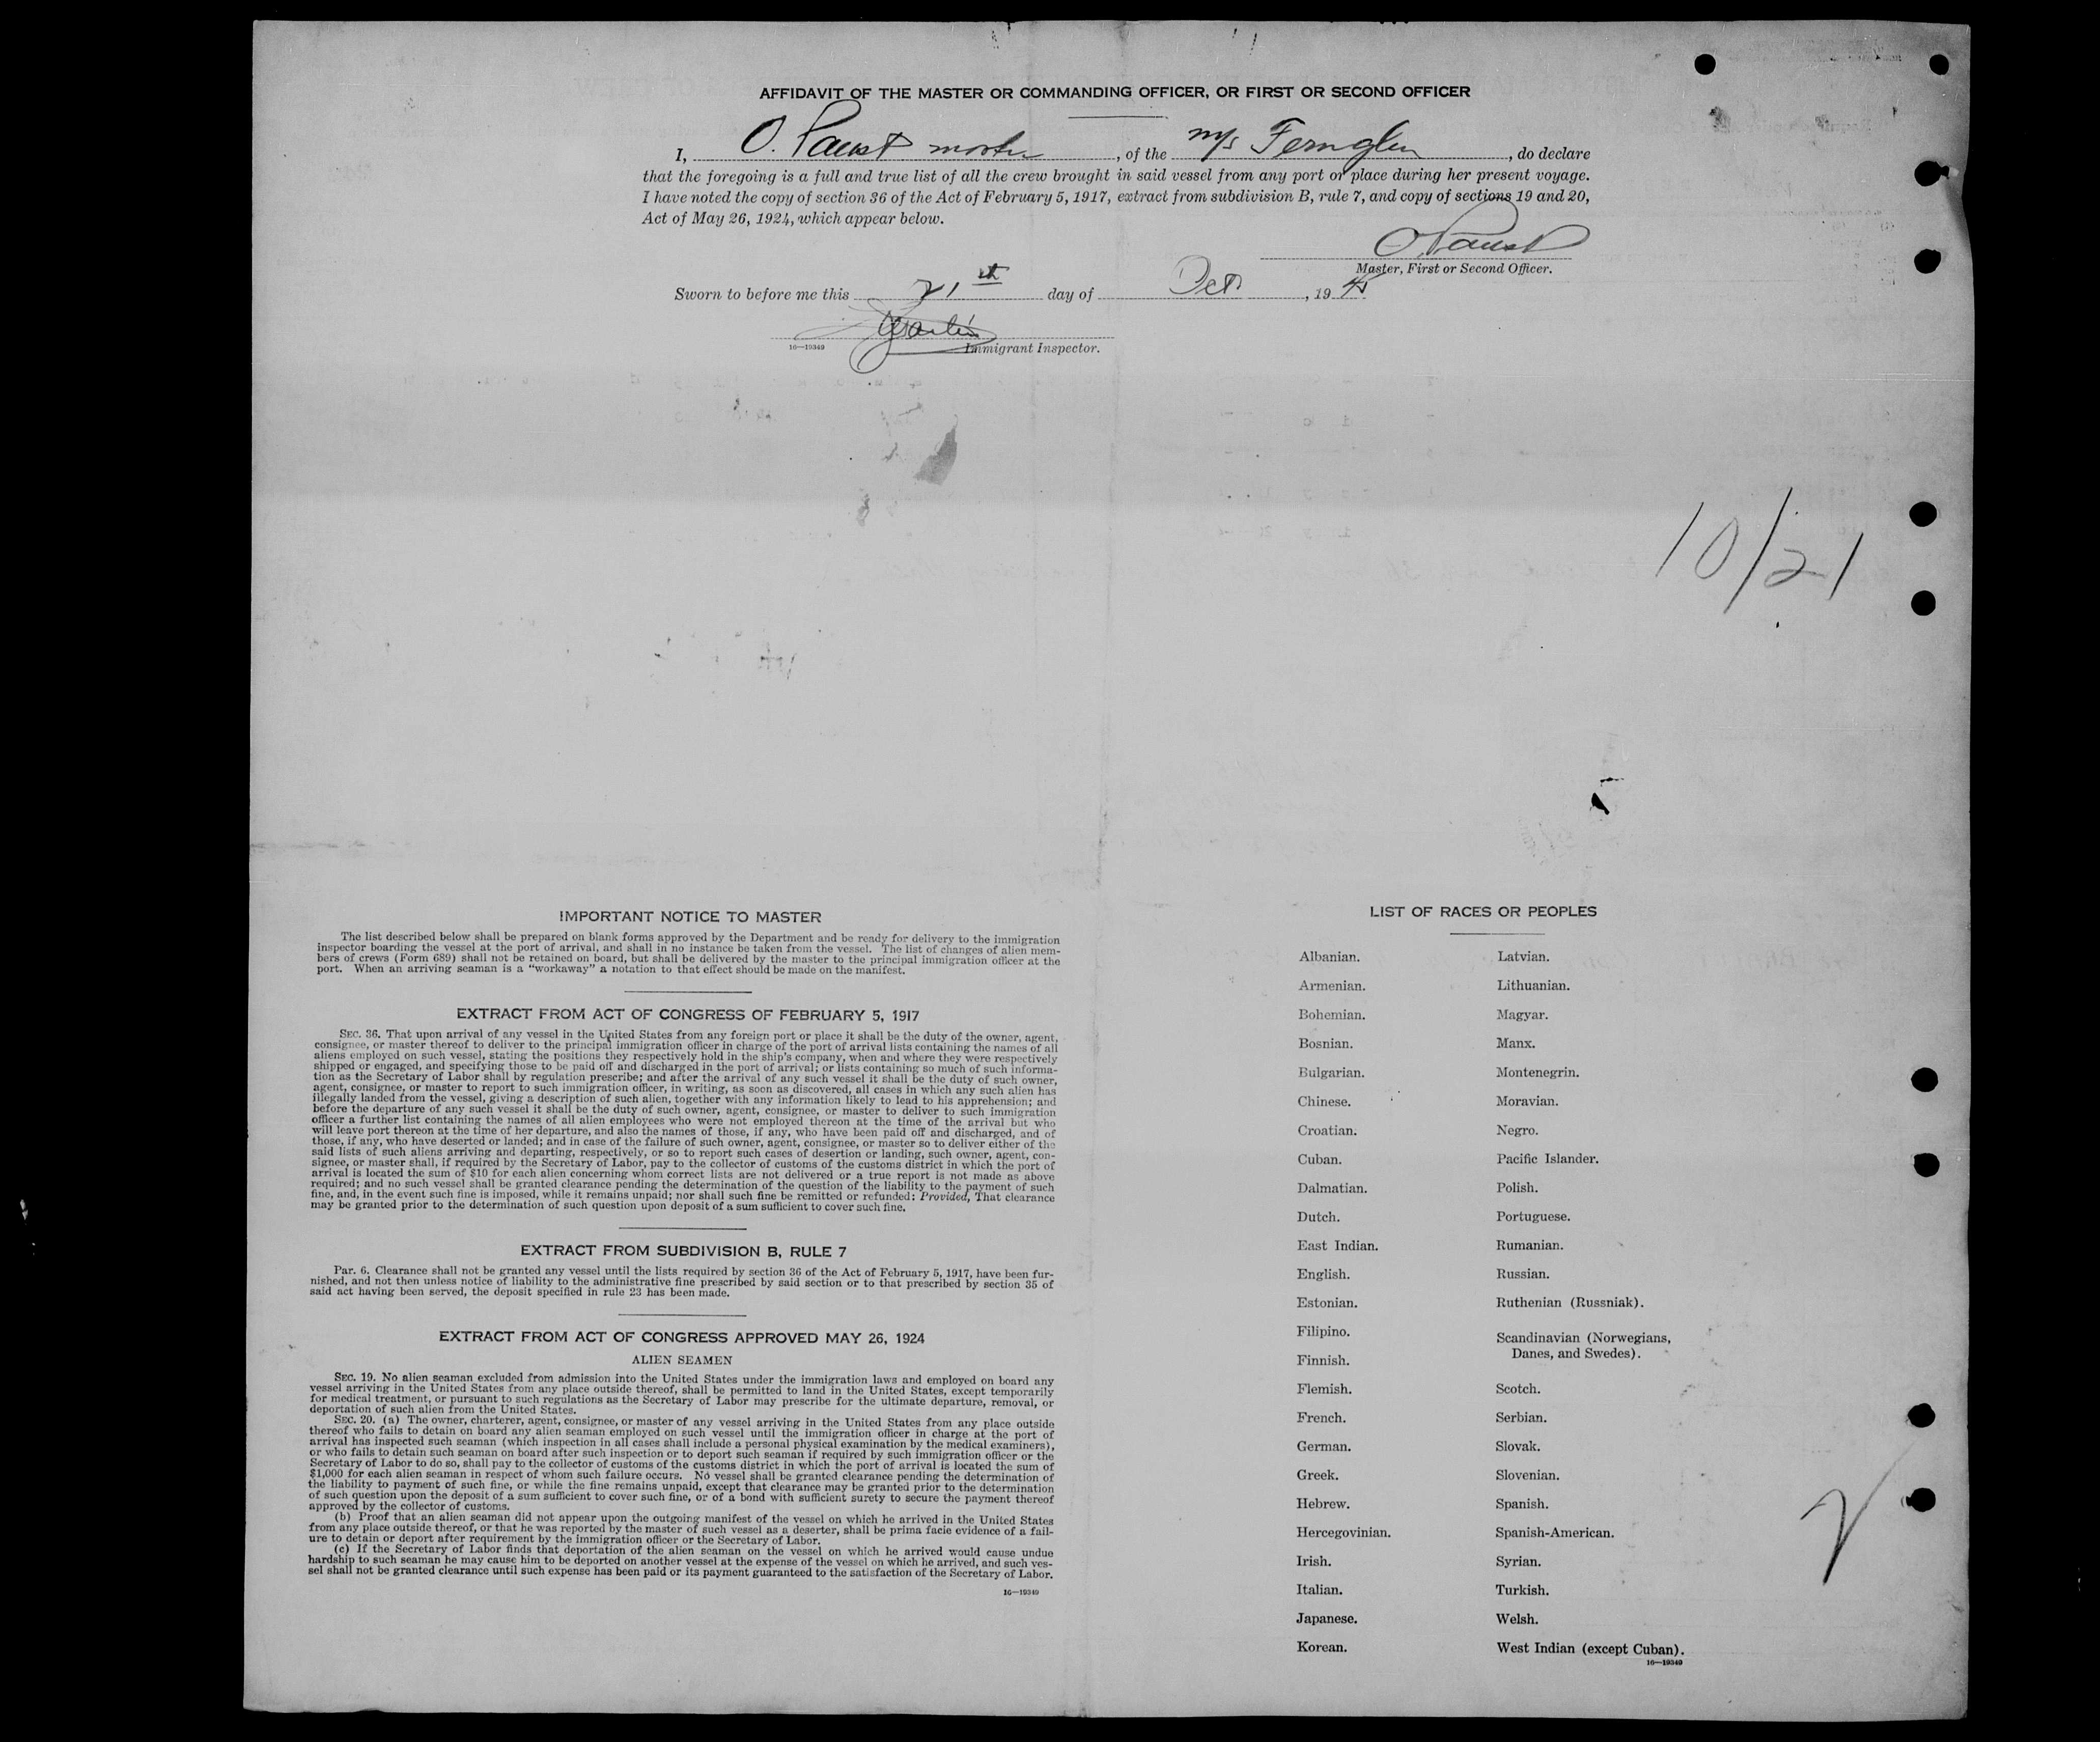 AFFIDAVIT OF THE MASTER OR COMMANDING OFFICER, OR FIRST OR SECOND OFFICER
I, O. Paust master, of the M/S Fernglen, do declare
that the foregoing is a full and true list of all the crew brought in said vessel from any port or place during her present voyage.
I have noted the copy of section 36 of the Act of February 5, 1917, extract from subdivision B, rule 7, and copy of sections 19 and 20,
Act of May 26, 1924, which appear below.
O. Paust
Master, First or Second Officer.
Sworn to before me this 21st day of Oct, 19
16—19349
Immigrant Inspector.
10/21
IMPORTANT NOTICE TO MASTER
The list described below shall be prepared on blank forms approved by the Department and be ready for delivery to the immigration
inspector boarding the vessel at the port of arrival, and shall in no instance be taken from the vessel. The list of changes of alien mem-
bers of crews (Form 689) shall not be retained on board, but shall be delivered by the master to the principal immigration officer at the
port. When an arriving seaman is a "workaway" a notation to that effect should be made on the manifest.
EXTRACT FROM ACT OF CONGRESS OF FEBRUARY 5, 1917
SEC. 36. That upon arrival of any vessel in the United States from any foreign port or place it shall be the duty of the owner, agent,
consignee, or master thereof to deliver to the principal immigration officer in charge of the port of arrival lists containing the names of all
aliens employed on such vessel, stating the positions they respectively hold in the ship's company, when and where they were respectively
shipped or engaged, and specifying those to be paid off and discharged in the port of arrival; or lists containing so much of such informa-
tion as the Secretary of Labor shall by regulation prescribe; and after the arrival of any such vessel it shall be the duty of such owner,
agent, consignee, or master to report to such immigration officer, in writing, as soon as discovered, all cases in which any such alien has
illegally landed from the vessel, giving a description of such alien, together with any information likely to lead to his apprehension; and
before the departure of any such vessel it shall be the duty of such owner, agent, consignee, or master to deliver to such immigration
officer a further list containing the names of all alien employees who were not employed thereon at the time of the arrival but who
will leave port thereon at the time of her departure, and also the names of those, if any, who have been paid off and discharged, and of
those, if any, who have deserted or landed; and in case of the failure of such owner, agent, consignee, or master so to deliver either of the
said lists of such aliens arriving and departing, respectively, or so to report such cases of desertion or landing, such owner, agent, con-
signee, or master shall, if required by the Secretary of Labor, pay to the collector of customs of the customs district in which the port of
arrival is located the sum of $10 for each alien concerning whom correct lists are not delivered or a true report is not made as above
required; and no such vessel shall be granted clearance pending the determination of the question of the liability to the payment of such
fine, and, in the event such fine is imposed, while it remains unpaid; nor shall such fine be remitted or refunded: Provided, That clearance
may be granted prior to the determination of such question upon deposit of a sum sufficient to cover such fine.
EXTRACT FROM SUBDIVISION B, RULE 7
Par. 6. Clearance shall not be granted any vessel until the lists required by section 36 of the Act of February 5, 1917, have been fur-
nished, and not then unless notice of liability to the administrative fine prescribed by said section or to that prescribed by section 35 of
said act having been served, the deposit specified in rule 23 has been made.
EXTRACT FROM ACT OF CONGRESS APPROVED MAY 26, 1924
ALIEN SEAMEN
SEC. 19. No alien seaman excluded from admission into the United States under the immigration laws and employed on board any
vessel arriving in the United States from any place outside thereof, shall be permitted to land in the United States, except temporarily
for medical treatment, or pursuant to such regulations as the Secretary of Labor may prescribe for the ultimate departure, removal, or
deportation of such alien from the United States.
SEC. 20. (a) The owner, charterer, agent, consignee, or master of any vessel arriving in the United States from any place outside
thereof who fails to detain on board any alien seaman employed on such vessel until the immigration officer in charge at the port of
arrival has inspected such seaman (which inspection in all cases shall include a personal physical examination by the medical examiners),
or who fails to detain such seaman on board after such inspection or to deport such seaman if required by such immigration officer or the
Secretary of Labor to do so, shall pay to the collector of customs of the customs district in which the port of arrival is located the sum of
$1,000 for each alien seaman in respect of whom such failure occurs. No vessel shall be granted clearance pending the determination of
the liability to payment of such fine, or while the fine remains unpaid, except that clearance may be granted prior to the determination
of such question upon the deposit of a sum sufficient to cover such fine, or of a bond with sufficient surety to secure the payment thereof
approved by the collector of customs.
(b) Proof that an alien seaman did not appear upon the outgoing manifest of the vessel on which he arrived in the United States
from any place outside thereof, or that he was reported by the master of such vessel as a deserter, shall be prima facie evidence of a fail-
ure to detain or deport after requirement by the immigration officer or the Secretary of Labor.
(c) If the Secretary of Labor finds that deportation of the alien seaman on the vessel on which he arrived would cause undue
hardship to such seaman he may cause him to be deported on another vessel at the expense of the vessel on which he arrived, and such ves-
sel shall not be granted clearance until such expense has been paid or its payment guaranteed to the satisfaction of the Secretary of Labor.
16—19349
LIST OF RACES OR PEOPLES
Albanian.
Armenian.
Bohemian.
Bosnian.
Bulgarian.
Chinese.
Croatian.
Cuban.
Dalmatian.
Dutch.
East Indian.
English.
Estonian.
Filipino.
Finnish.
Flemish.
French.
German.
Greek.
Hebrew.
Hercegovinian.
Irish.
Italian.
Japanese.
Korean.
Latvian.
Lithuanian.
Magyar.
Manx.
Montenegrin.
Moravian.
Negro.
Pacific Islander.
Polish.
Portuguese.
Rumanian.
Russian.
Ruthenian (Russniak).
Scandinavian (Norwegians,
Danes, and Swedes).
Scotch.
Serbian.
Slovak.
Slovenian.
Spanish.
Spanish-American.
Syrian.
Turkish.
Welsh.
West Indian (except Cuban).
16—19349